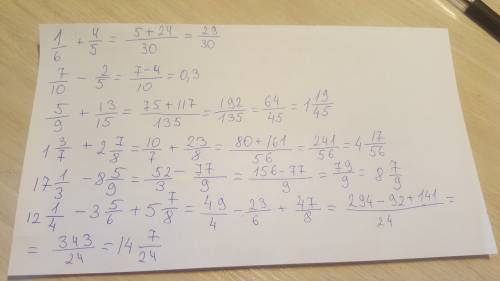 1/6 + 4/5 = (5+24)/30 = 29/30
7/10 - 2/5 = (7-4)/10 = 0,3
5/9 + 13/15 = (75+117)/135 = 192/135 = 64/45 = 1 19/45
1 3/7 + 2 7/8 = 10/7 + 23/8 = (80+161)/56 = 241/56 = 4 17/56
17 1/3 - 8 5/9 = 52/3 - 77/9 = (156-77)/9 = 79/9 = 8 7/9
12 1/4 - 3 5/6 + 5 7/8 = 49/4 - 23/6 + 47/8 = (294-92+141)/24 =
= 343/24 = 14 7/24